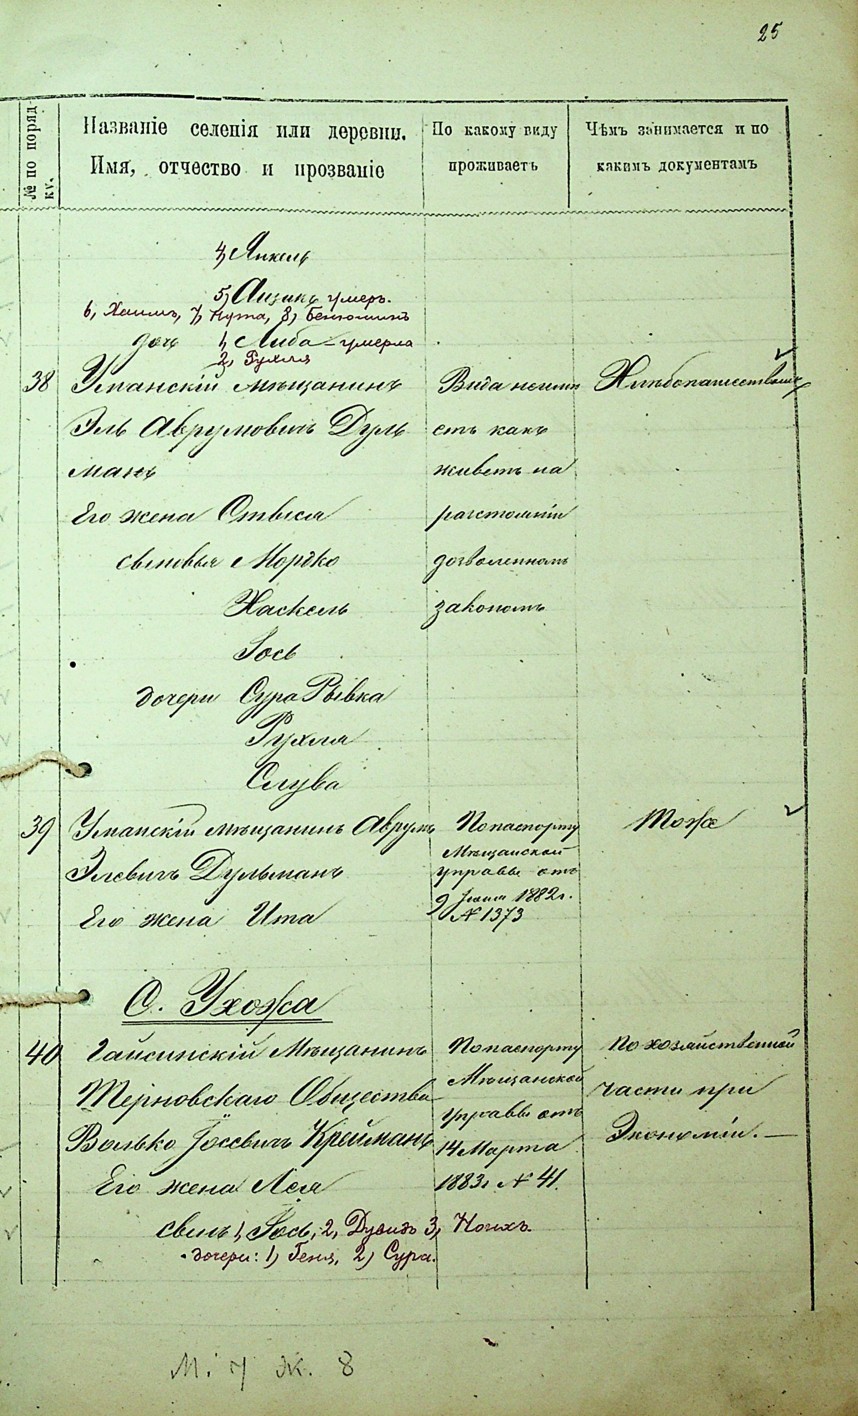 25
№ по поряд-
ку.
Названіе селенія или деревни.
Имя, отчество и прозваніе
По какому виду
проживаетъ
Чѣмъ занимается и по
какимъ документамъ
4, Янкель
5, Аизикъ умеръ.
6, Хаимъ, 7, Нута, 8, Бенюминъ
дочь 1, Либа – умерла
2, Рухля
38 Уманскій мѣщанинъ
Эль Аврумовичъ Дуль
манъ
Его жена
сыновья Мордко
Хаскель
Іось
дочери Сура Рывка
Рухля
Слува
Вида неимѣ
етъ какъ
живетъ на
разстояніи
дозволенномъ
закономъ
Хлѣбопашествомъ
39 Уманскій мѣщанинъ Аврумъ
Элевичъ Дульманъ
Его жена Ита
По паспорту
Мѣщанской
управы отъ
9 1882 г.
№ 1373
Тоже
С. Ухожа
40 Гайсинскій Мѣщанинъ
Терновскаго Общества
Волько Іосевичъ Крейманъ
Его жена Лея
сынъ 1, Іось, 2, Дувидъ 3, Нонхъ
дочери: 1, Геня, 2, Сура.
По паспорту
Мѣщанской
управы отъ
14 Марта
1883 г. № 41.
По хозяйственной
части при
Экономіи. —
М. 7 Ж. 8